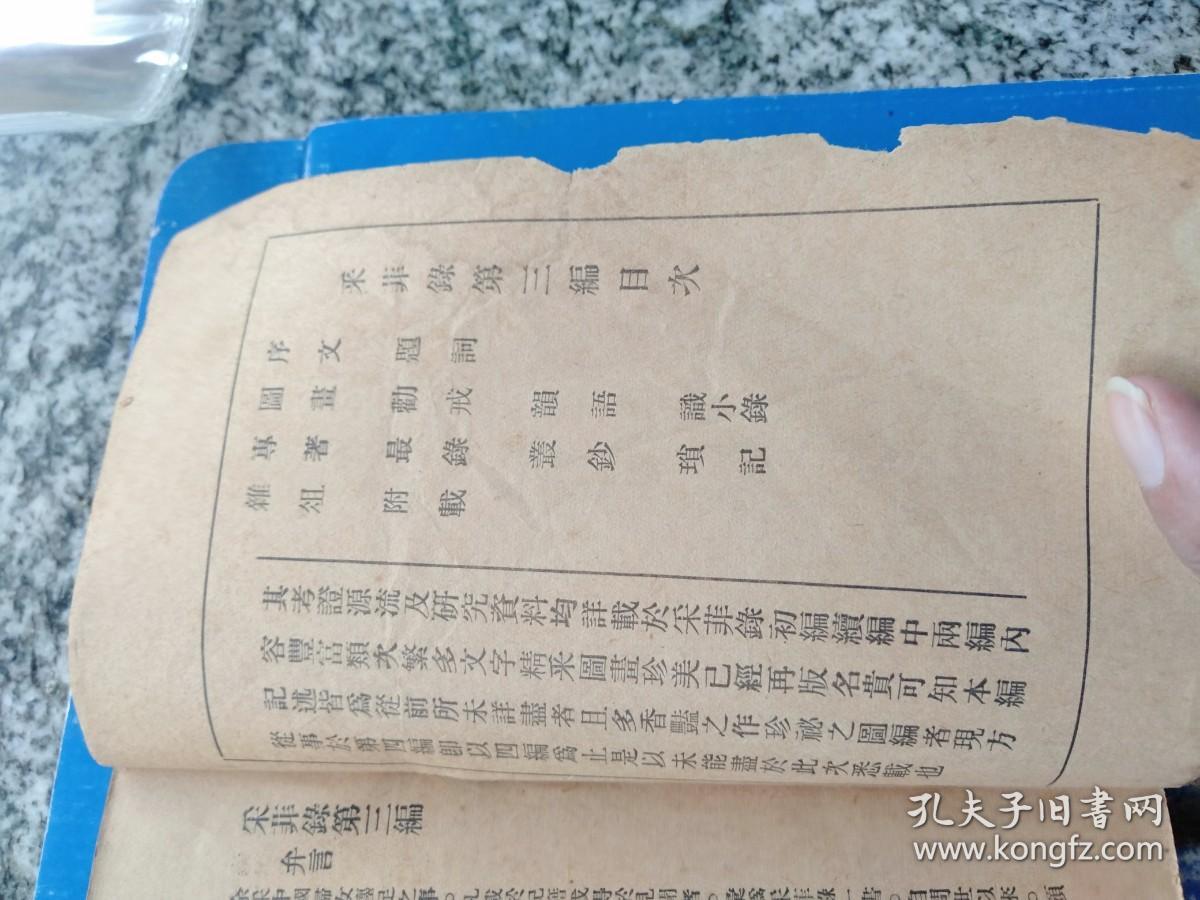 采菲錄第三編目次
序文 題詞
圖畫 勸戒 韻語 識小錄
專著 最錄 叢鈔 瑣記
雜俎 附載
其考證源流及研究資料均詳載於采菲錄初編續編中兩編內
容豐富類次繁多文字精采圖畫珍美已經再版名貴可知本編
記述皆爲從前所未詳盡者且多香豔之作珍祕之圖編者現方
從事於第四編卽以四編爲止是以未能盡於此次悉載也
采菲錄第三編
弁言
孔夫子旧书网
www.kongfz.com